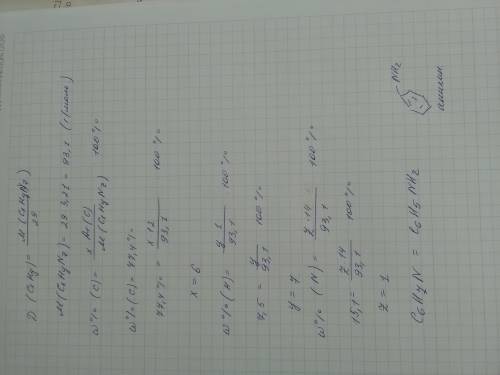 D (CxHy) = M(CxHyNz) / 29
M(CxHyNz) = 29 · 3,21 = 93,1 (г/моль)
ω% (C) = x Ar(C) / M(CxHyNz) 100%
ω% (C) = 77,4%
77,4% = x 12 / 93,1 100%
x = 6
ω% (H) = y 1 / 93,1 100%
7,5 = y / 93,1 100%
y = 7
ω% (N) = z · 14 / 93,1 100%
15,1 = z · 14 / 93,1 100%
z = 1
C6H7N = C6H5NH2
NH2
анилин